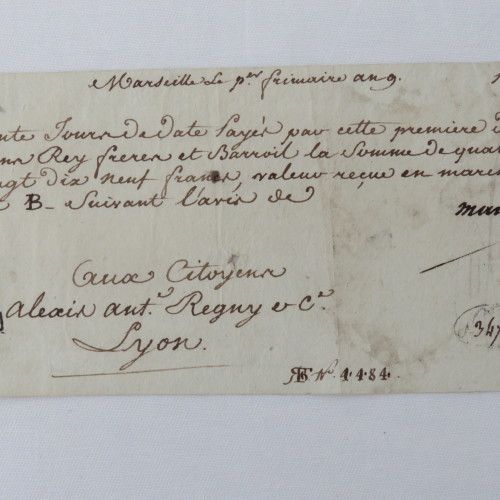 Marseille le p.er frimaire an 9.
nte Jours de date Payés par cette première
Rey freres et Barroil la Somme de quat
gt dix neuf francs, valeur reçue en marc
B- Suivant l'avis de
Aux Citoyens
Alexis ant.e Regny & C.e
Lyon.
347
N.o 4484.